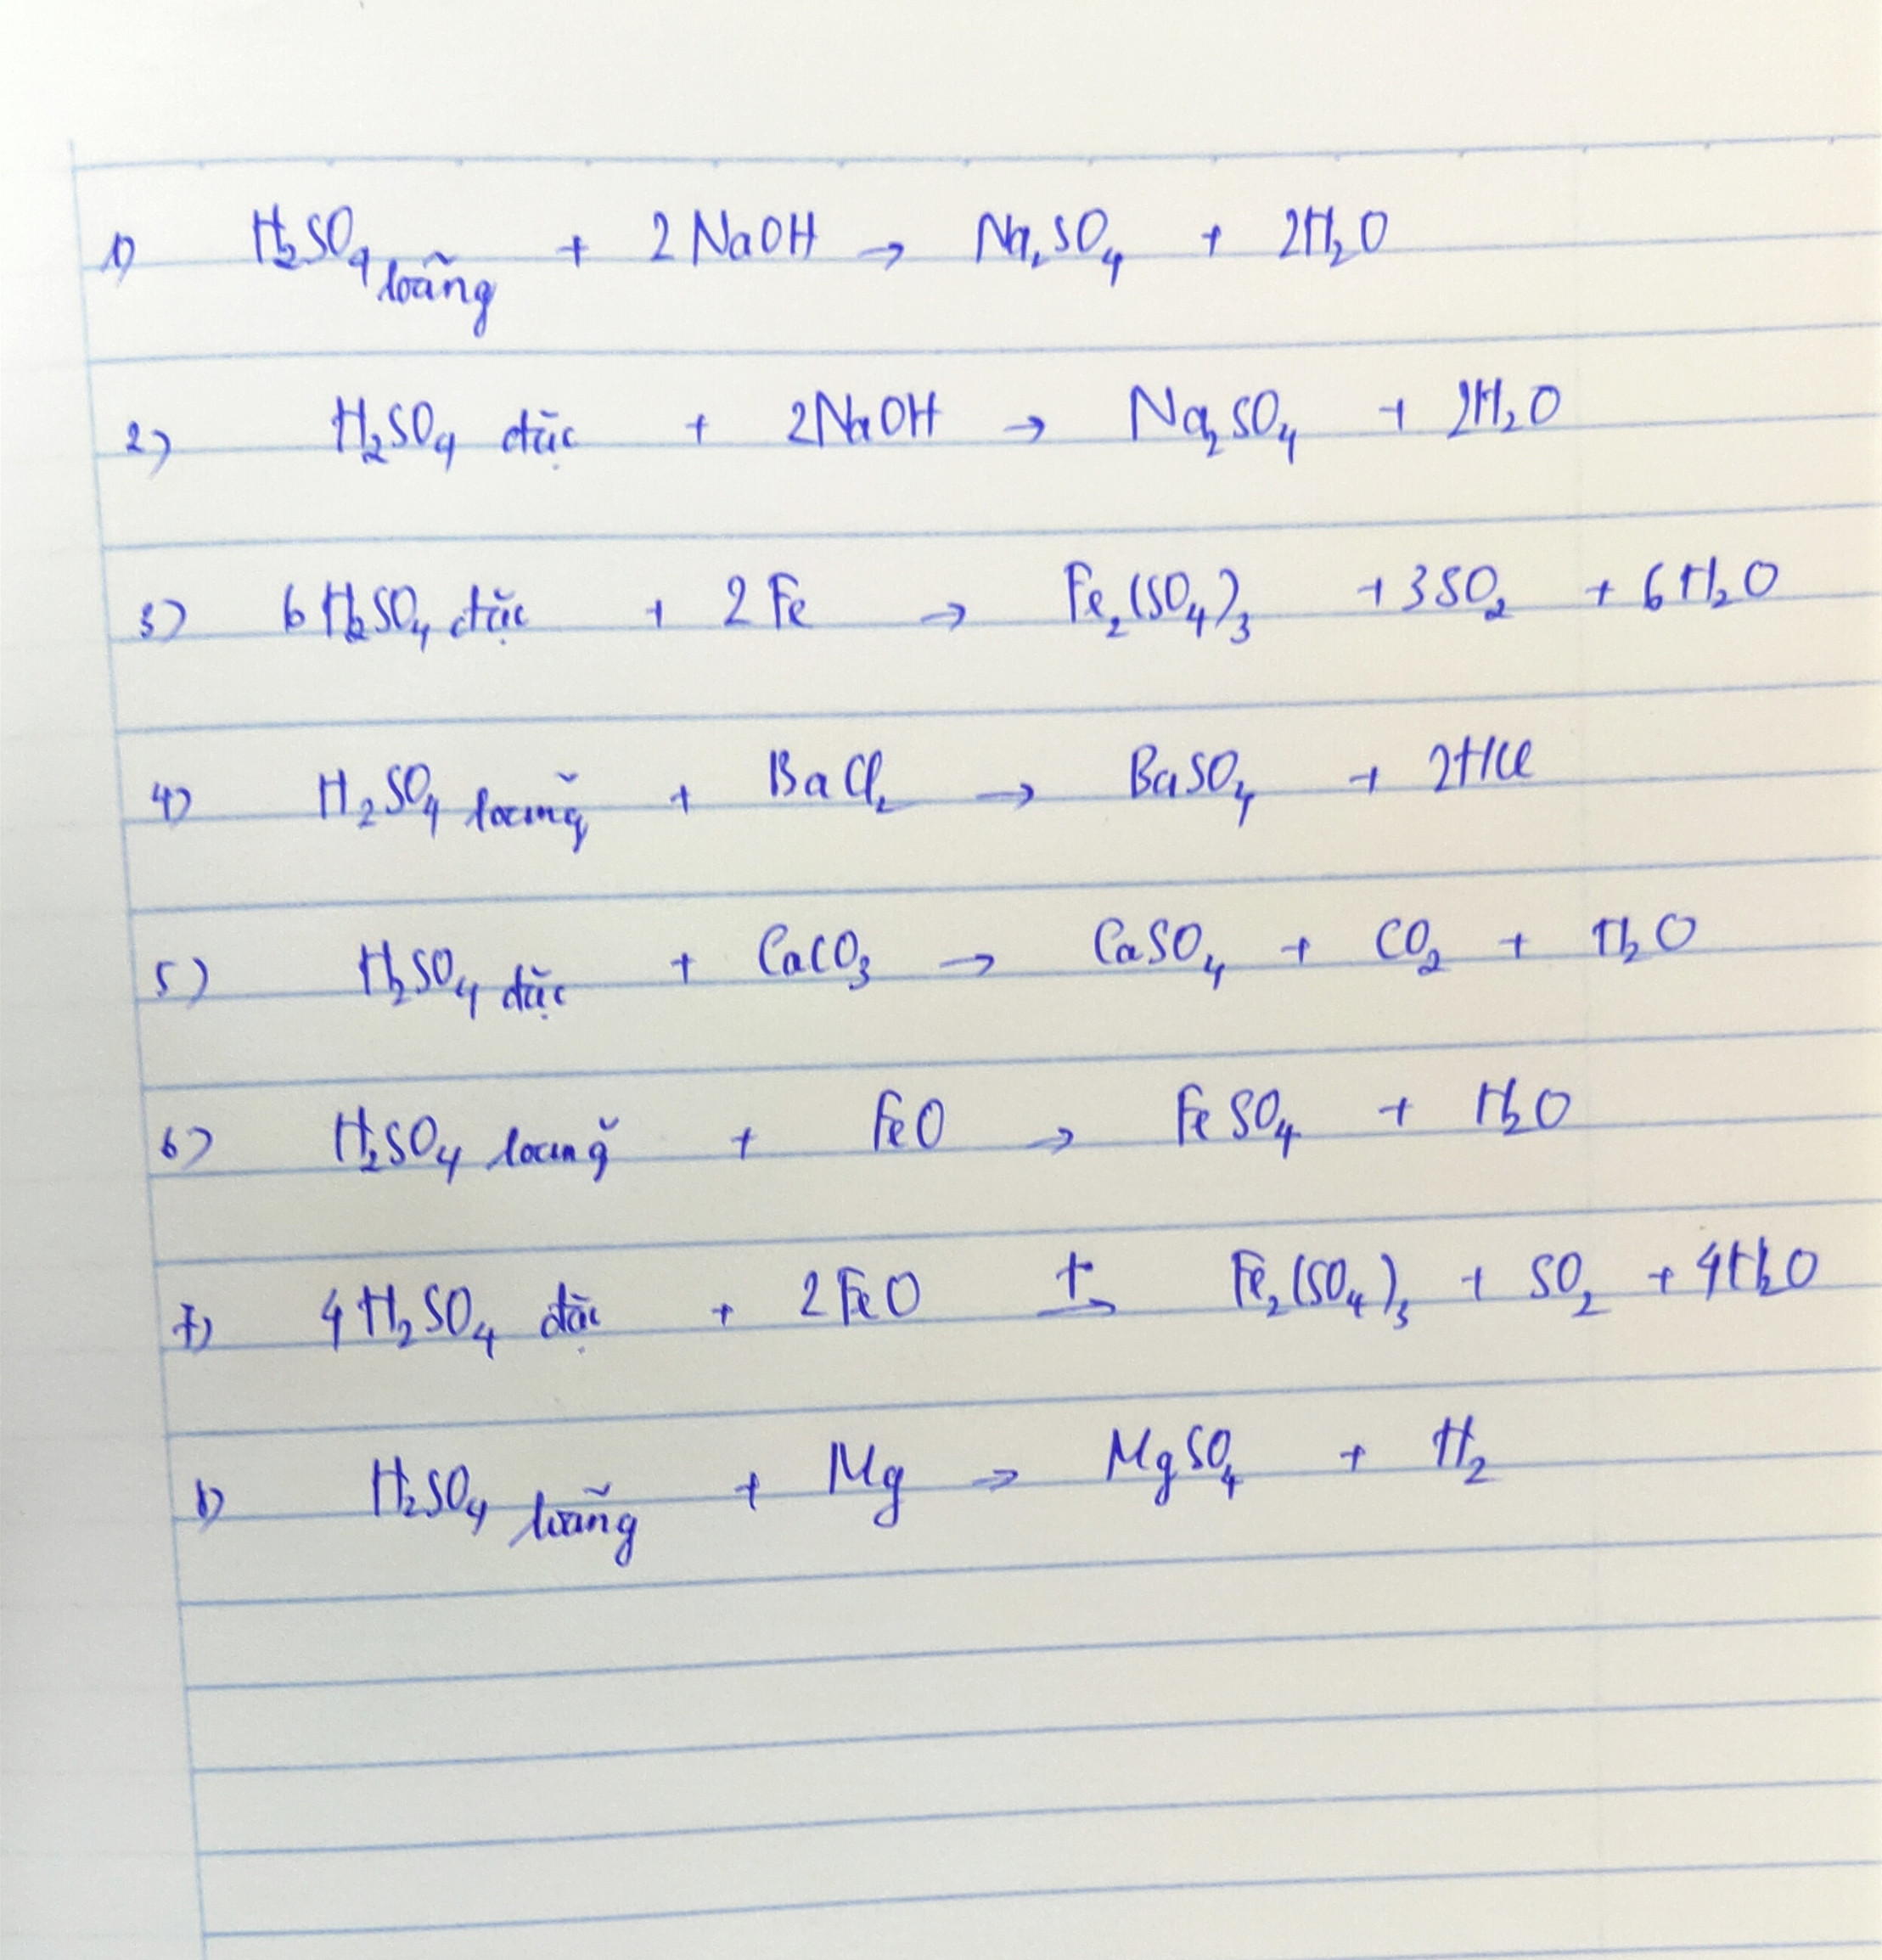 1) H₂SO₄ loãng + 2NaOH → Na₂SO₄ + 2H₂O
2) H₂SO₄ đặc + 2NaOH → Na₂SO₄ + 2H₂O
3) 6H₂SO₄ đặc + 2Fe → Fe₂(SO₄)₃ + 3SO₂ + 6H₂O
4) H₂SO₄ loãng + BaCl₂ → BaSO₄ + 2HCl
5) H₂SO₄ đặc + CaCO₃ → CaSO₄ + CO₂ + H₂O
6) H₂SO₄ loãng + FeO → FeSO₄ + H₂O
7) 4H₂SO₄ đặc + 2FeO t°→ Fe₂(SO₄)₃ + SO₂ + 4H₂O
8) H₂SO₄ loãng + Mg → MgSO₄ + H₂